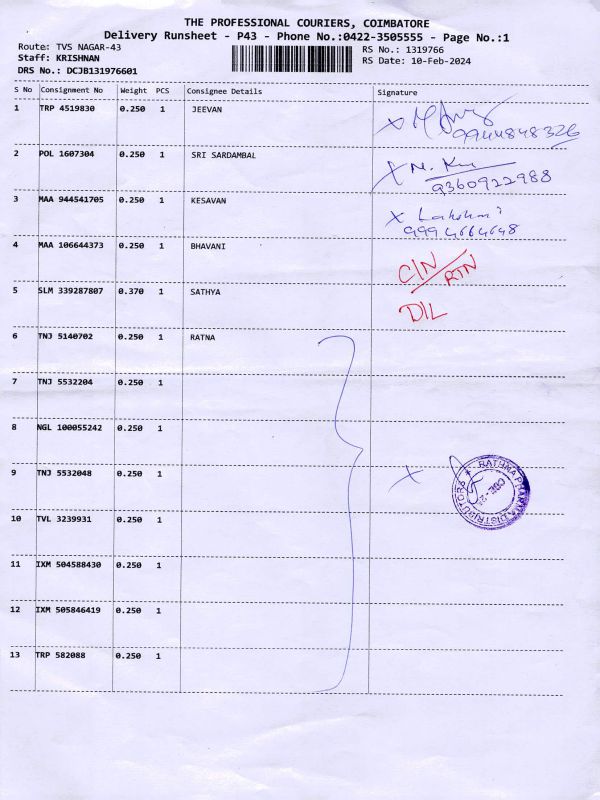 THE PROFESSIONAL COURIERS, COIMBATORE
Delivery Runsheet - P43 - Phone No.:0422-3505555 - Page No.:1
Route: TVS NAGAR-43
Staff: KRISHNAN
DRS No.: DCJB131976601
RS No.: 1319766
RS Date: 10-Feb-2024
S No Consignment No Weight PCS Consignee Details Signature
1 TRP 4519830 0.250 1 JEEVAN
X 9944848326
2 POL 1607304 0.250 1 SRI SARDAMBAL
X N. 9360922988
3 MAA 944541705 0.250 1 KESAVAN
X Lakshmi
9994664648
4 MAA 106644373 0.250 1 BHAVANI
CIN/RTN
5 SLM 339287807 0.370 1 SATHYA
DIL
6 TNJ 5140702 0.250 1 RATNA
7 TNJ 5532204 0.250 1
8 NGL 100055242 0.250 1
9 TNJ 5532048 0.250 1
X
RATHNA PHARMA DISTRIBUTORS
CBE-25
10 TVL 3239931 0.250 1
11 IXM 504588430 0.250 1
12 IXM 505846419 0.250 1
13 TRP 582088 0.250 1